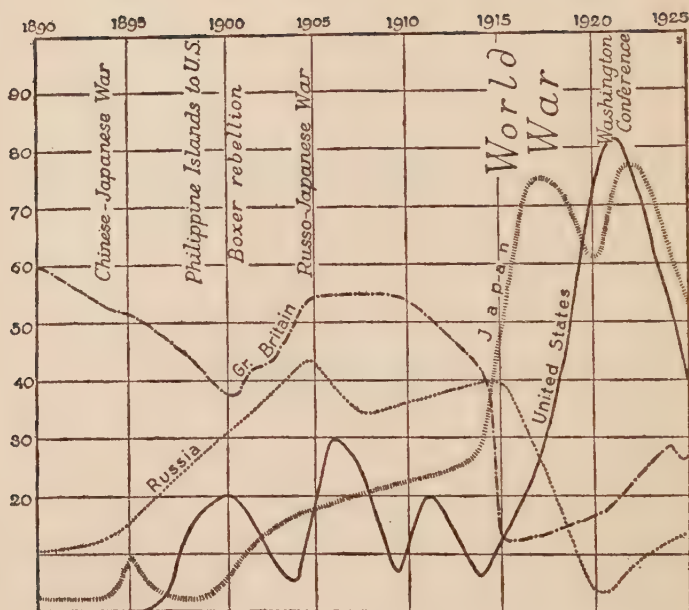 1890 1895 1900 1905 1910 1915 1920 1925
90
80
70
60
50
40
30
20
Chinese-Japanese War
Philippine Islands to U.S.
Boxer rebellion
Russo-Japanese War
World
War
Washington
Conference
Gr. Britain
Russia
Japan
United States